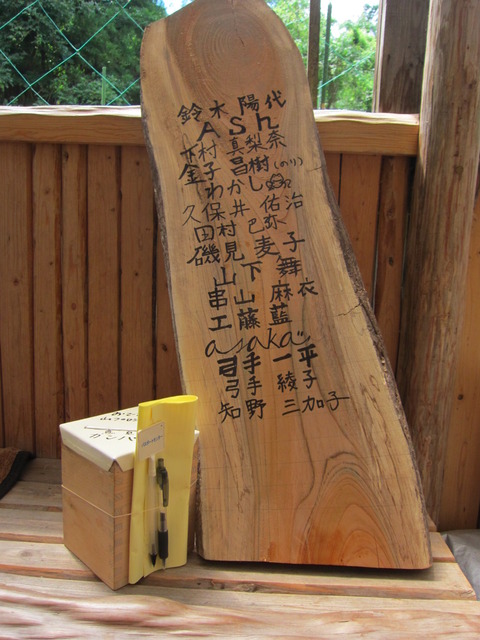 鈴木 陽代
ASh
木村 真梨奈
金子 昌樹(のり)
わかし
久保井 佑治
田村 巴弥
磯見 麦子
山下 舞
串山 麻衣
工藤 藍
asaka
弓手 一平
弓手 綾子
知野 三加子
カンパ